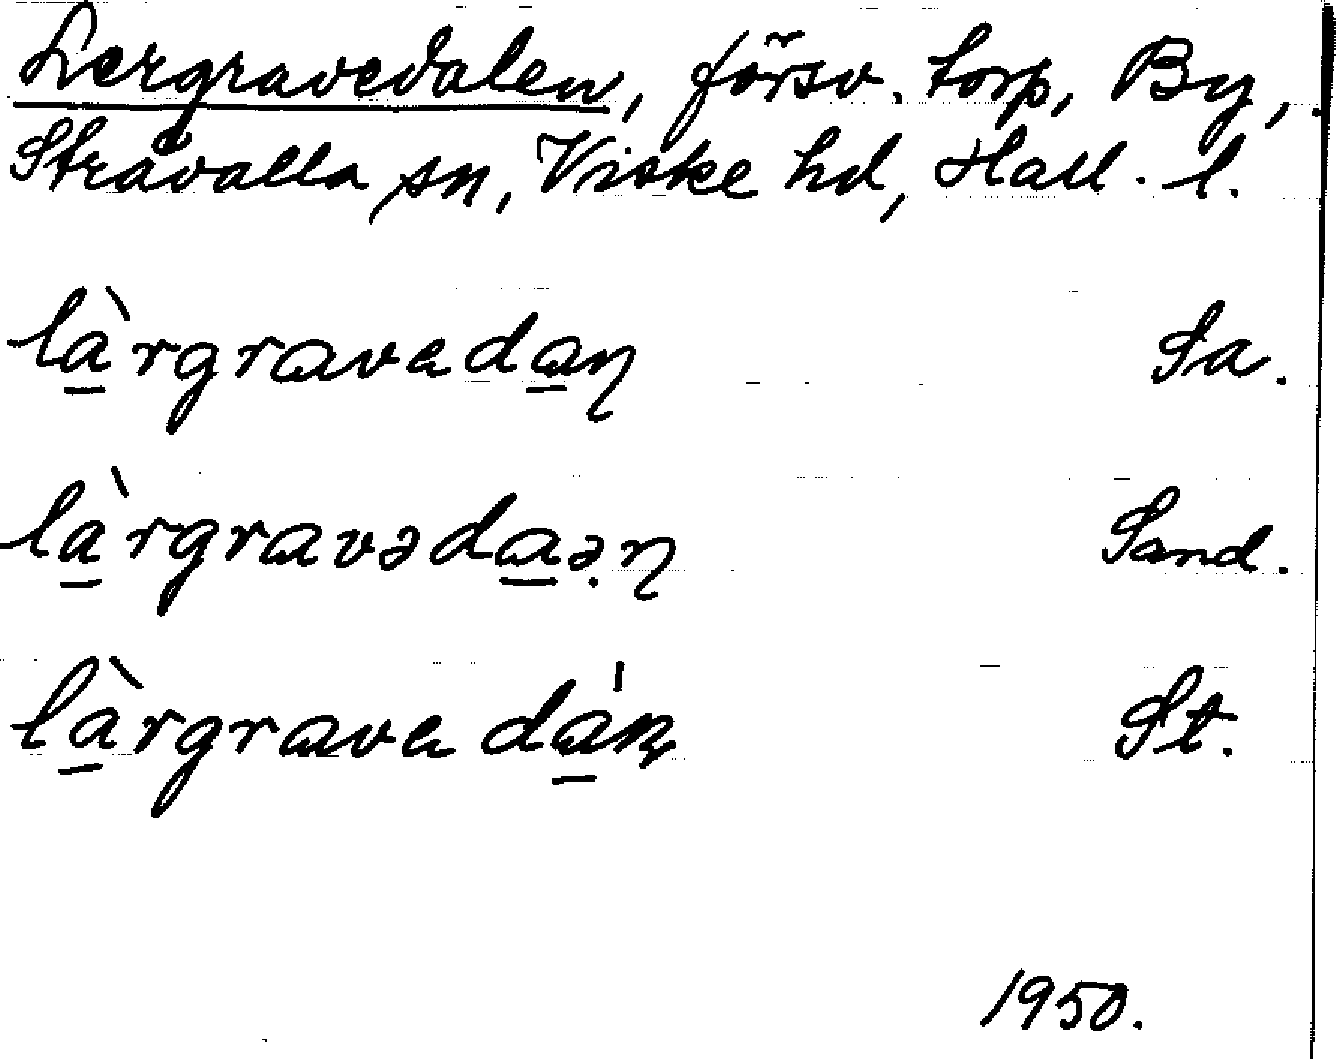 Lergravedalen, försv. torp, By,
Stråvalla sn, Viske hd, Hall. l.
là̱rgravɐda̱ɳ Sa.
là̱rgravəda̱ə̣ɳ Sand.
là̱rgravɐdá̱ɳ St.
1950.